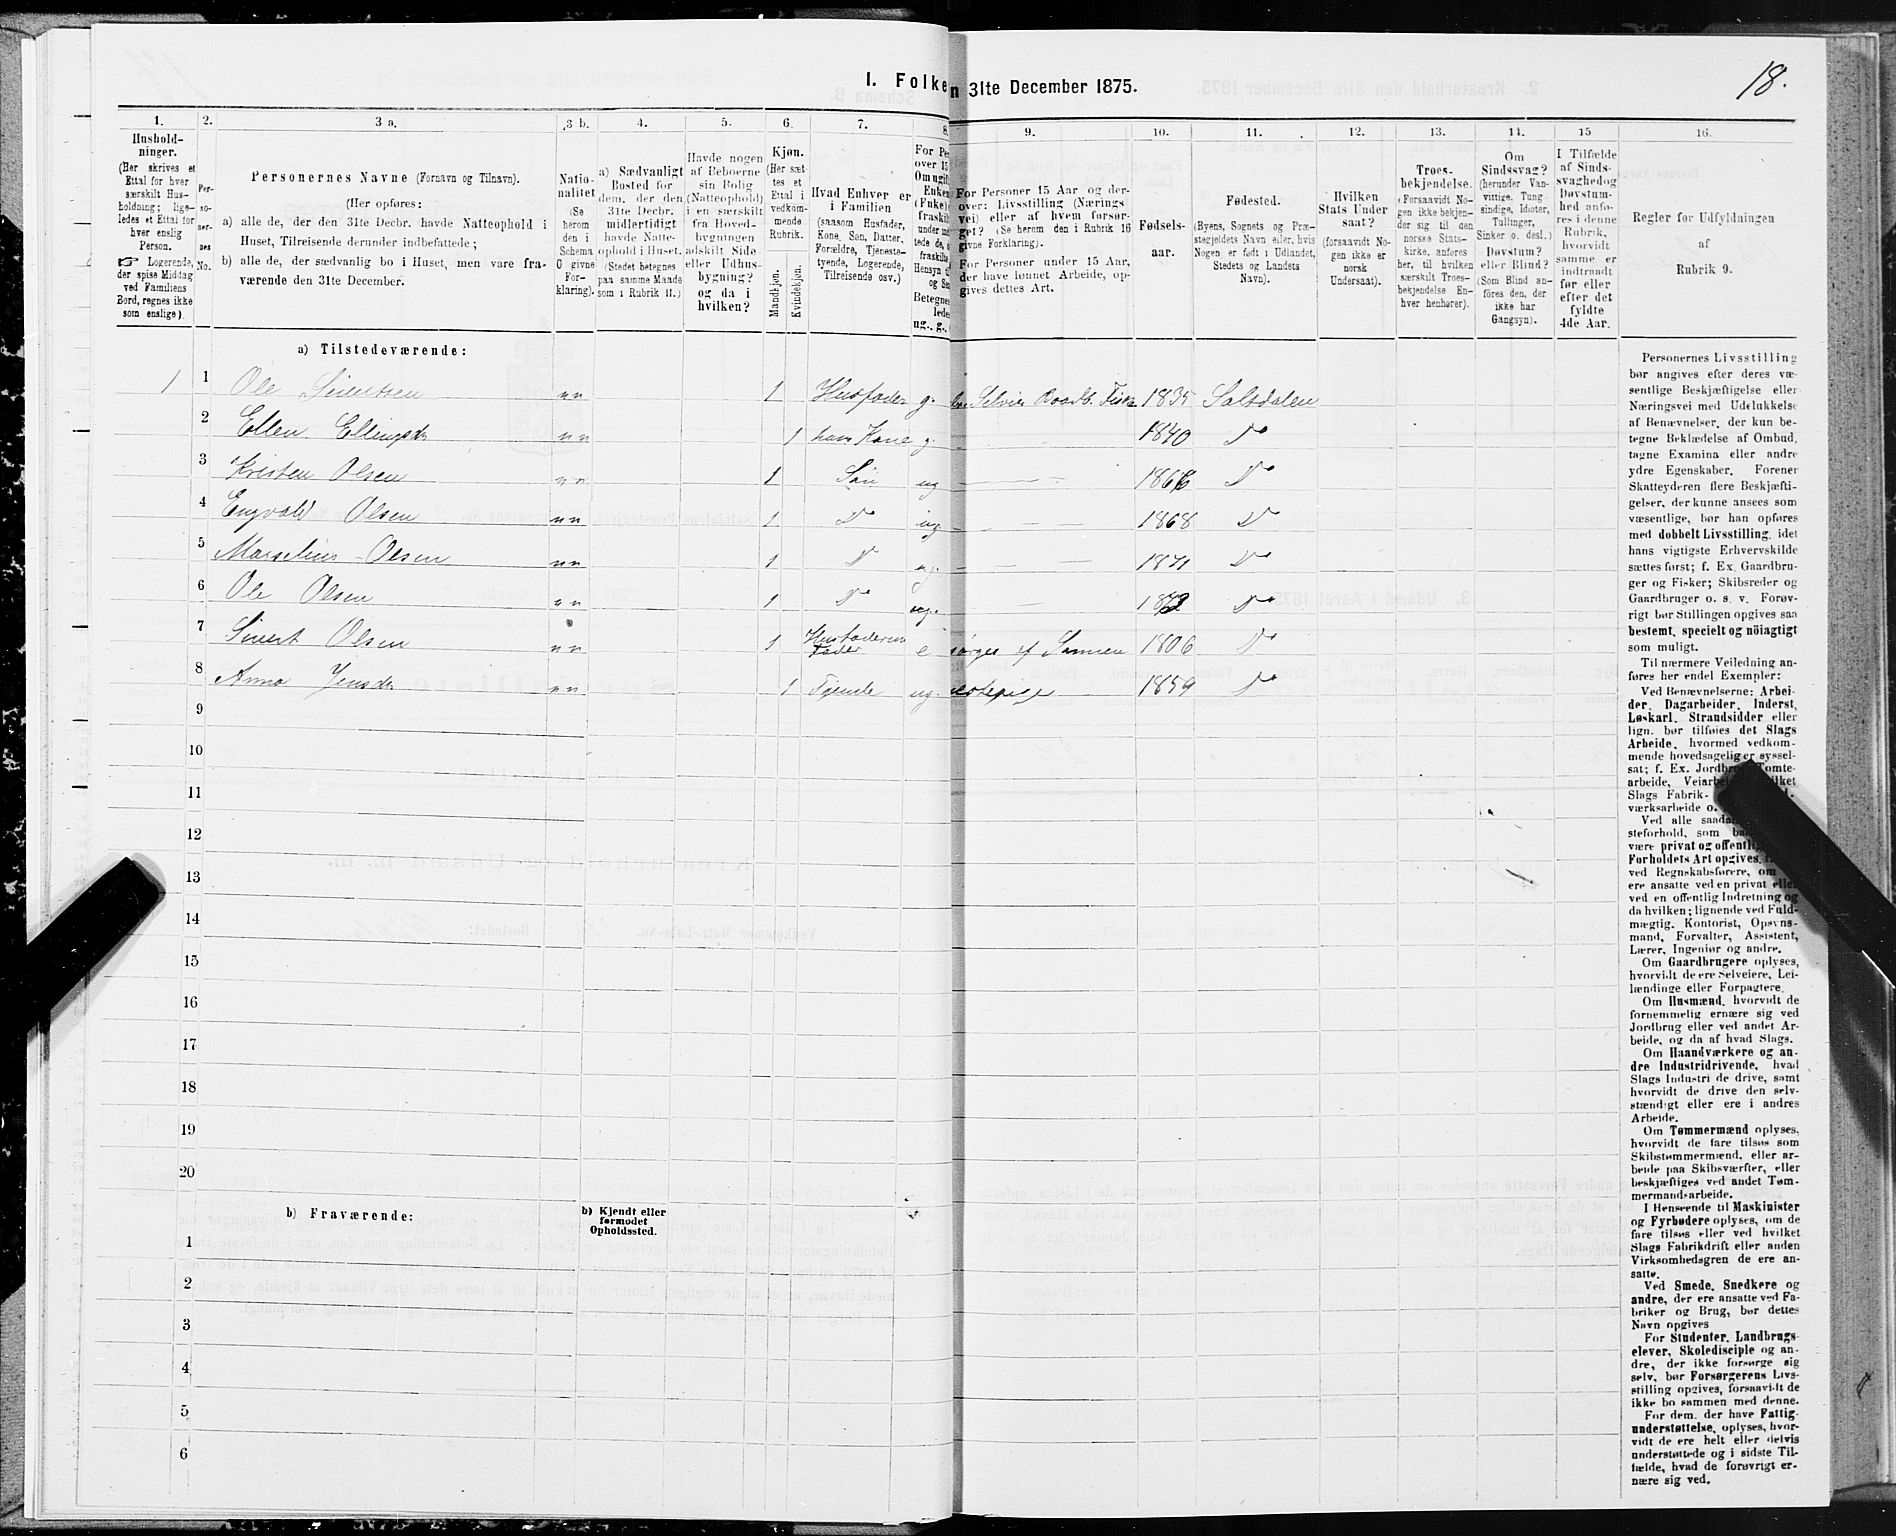 18.
I. Folke n 31te December 1875.
1. 2. 3 a. 3 b. 4. 5. 6. 7. 8. 9. 10. 11. 12. 13. 14. 15 16.
Hushold-
ninger.
(Her skrives et
Ettal for hver
særskilt Hus-
holdning; lige-
ledes et Ettal for
hver enslig
Person.
☞ Logerende,
der spise Middag
ved Familiens
Bord, regnes ikke
som enslige).
Per-
so-
ner-
nes
No.
Personernes Navne (Fornavn og Tilnavn).
(Her opføres:
a) alle de, der den 31te Decbr. havde Natteophold i
Huset, Tilreisende derunder indbefattede;
b) alle de, der sædvanlig bo i Huset, men vare fra-
værende den 31te December.
Natio-
nalitet
(Se
herom
den i
Schema
G givne
For-
klaring).
a) Sædvanligt
Bosted for
dem, der den
31te Decbr.
midlertidigt
havde Natte-
ophold i Huset.
(Stedet betegnes
paa samme Maade
som i Rubrik 11.)
Havde nogen
af Beboerne
sin Bolig
(Natteophold)
i en særskilt
fra Hoved-
bygningen
adskilt Side-
eller Udhus-
bygning?
og da i
hvilken?
Kjøn.
(Her sæt-
tes et
Ettal i
vedkom-
mende
Rubrik.
Mandkjøn.
Kvindekjøn.
Hvad Enhver er
i Familien
(saasom Husfader,
Kone, Søn, Datter,
Forældre, Tjeneste-
tyende, Logerende,
Tilreisende osv.)
For Pe
over 15
Om ugift
Enken
(Fuke)
fraskilt
under ind
tede, o
fraskilte
Hensyn ti
og Se
Betegnes
ledes
ug., g.,
For Personer 15 Aar og der-
over: Livsstilling (Nærings
vei) eller af hvem forsør-
get? (Se herom den i Rubrik 16
givne Forklaring).
For Personer under 15 Aar,
der have lønnet Arbeide, op-
gives dettes Art.
Fødsels-
aar.
Fødested.
(Byens, Sognets og Præ-
stegjeldets Navn eller, hvis
Nogen er født i Udlandet,
Stedets og Landets
Navn).
Hvilken
Stats Under
saat?
(forsaavidt No-
gen ikke er
norsk
Undersaat).
Troes-
bekjendelse.
(Forsaavidt No-
gen ikke bekjen-
der sig til den
norske Stats-
kirke, anføres
her, til hvilken
særskilt Troes-
bekjendelse En-
hver henhører).
Om
Sindssvag?
(herunder Van-
vittige, Tung
sindige, Idioter,
Tullinger,
Sinker o. desl.)
Døvstum?
eller Blind?
(Som Blind an-
føres den, der
ikke har
Gangsyn).
I Tilfælde
af Sinds-
svaghed og
Døvstum-
hed anfø-
res i denne
Rubrik,
hvorvidt
samme er
indtraadt
før eller
efter det
fyldte
4de Aar.
Regler for Udfyldningen
af
Rubrik 9.
a) Tilstedeværende:
1 1 Ole Sivertsen nn 1 Husfader g. Selvier Baadb. Fisk 1835 Saltdalen
2 Ellen Ellingsdr nn 1 hans Kone g. 1840 Do
3 Kristen Olsen nn 1 Søn ug 1866 Do
4 Engvald Olsen nn 1 Do ug 1868 Do
5 Marselius Olsen nn 1 Do ug. 1871 Do
6 Ole Olsen nn 1 Do ug. 1873 Do
7 Sivert Olsen nn 1 Husfaderens Fader e sørges af Sønnen 1806 Do
8 Anna Jensdr nn 1 Tjende ug. estepige 1859 Do
9
10
11
12
13
14
15
16
17
18
19
20
b) Fraværende:
b) Kjendt eller
formodet
Opholdssted.
1
2
3
4
5
6
Personernes Livsstilling
bør angives efter deres væ-
sentlige Beskjæftigelse eller
Næringsvei med Udelukkelse
af Benævnelser, der kun be-
tegne Beklædelse af Ombud,
tagne Examina eller andre
ydre Egenskaber. Forener
Skatteyderen flere Beskjæfti-
gelser, der kunne ansees som
væsentlige, bør han opføres
med dobbelt Livsstilling, idet
hans vigtigste Erhvervskilde
sættes først; f. Ex. Gaardbru-
ger og Fisker; Skibsreder og
Gaardbruger o. s. v. Forøv-
rigt bør Stillingen opgives saa
bestemt, specielt og nöiagtigt
som muligt.
Til nærmere Veiledning an-
føres her endel Exempler:
Ved Benævnelserne: Arbei-
der, Dagarbeider, Inderst,
Løskarl, Strandsidder eller
lign. bør tilføies det Slags
Arbeide, hvormed vedkom-
mende hovedsagelig er syssel-
sat; f. Ex. Jordbr Tomte-
arbeide, Veiarbe ilket
Slags Fabrik-
værksarbeide o.
Ved alle saada
steforhold, som
være privat og offentlig
Forholdets Art opgives,
ved Regnskabsførere, om
ere ansatte ved en privat eller
ved en offentlig Indretning og
da hvilken; lignende ved Fuld-
mægtig, Kontorist, Opsyns-
mand, Forvalter, Assistent,
Lærer, Ingeniør og andre.
Om Gaardbrugere oplyses,
hvorvidt de ere Selveiere, Lei-
lændinge eller Forpagtere.
Om Husmænd, hvorvidt de
fornemmelig ernære sig ved
Jordbrug eller ved andet Ar-
beide, og da af hvad Slags.
Om Haandværkere og an-
dre Industridrivende, hvad
Slags Industri de drive, samt
hvorvidt de drive den selv-
stændigt eller ere i andres
Arbeide.
Om Tømmermænd oplyses,
hvorvidt de fare tilsøs som
Skibstømmermænd, eller ar-
beide paa Skibsværfter, eller
beskjæftiges ved andet Tøm-
mermandsarbeide.
I Henseende til Maskinister
og Fyrbødere oplyses, om de
fare tilsøs eller ved hvilket
Slags Fabrikdrift eller anden
Virksomhedsgren de ere an-
satte.
Ved Smede, Snedkere og
andre, der ere ansatte ved Fa-
briker og Brug, bør dettes
Navn opgives
For Studenter, Landbrugs-
elever, Skoledisciple og an-
dre, der ikke forsørge sig
selv, bør Forsørgerens Livs-
stilling opgives, forsaavidt de
ikke bo sammen med denne.
For dem, der have Fattig-
understøttelse, oplyses, hvor-
vidt de ere helt eller delvis
understøttede og i sidste Til-
fælde, hvad de forøvrigt er-
nære sig ved.